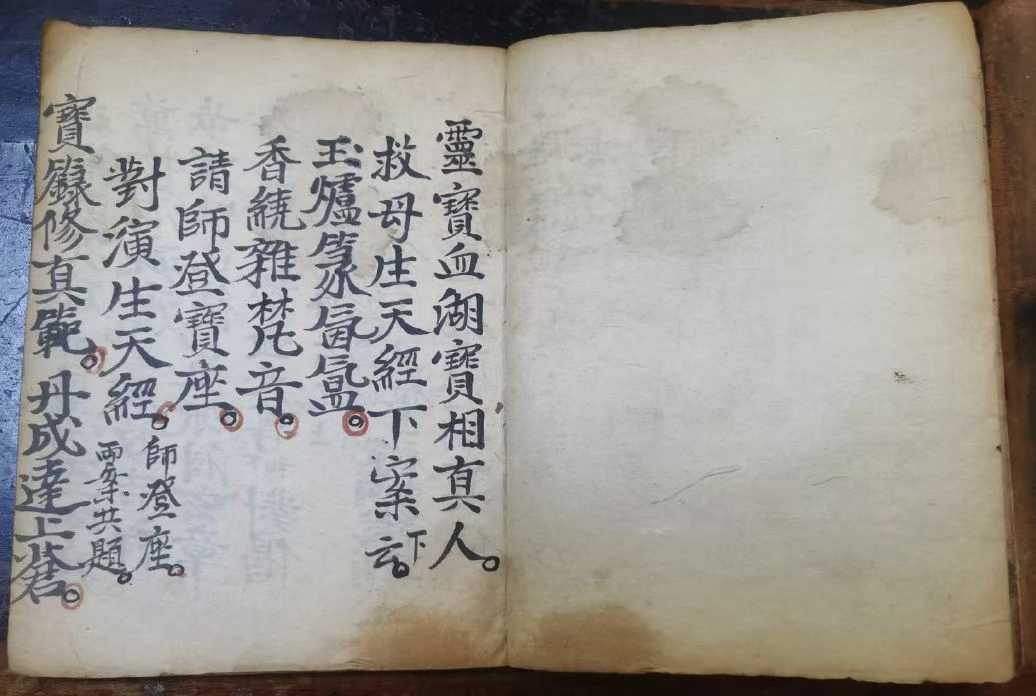 靈寶血湖寶相真人。
救母生天經下案下云。
玉爐篆氤氳。
香繞雜梵音。
請師登寶座。
對演生天經。師登座。兩案共題。
寶籙修真範。丹成達上蒼。